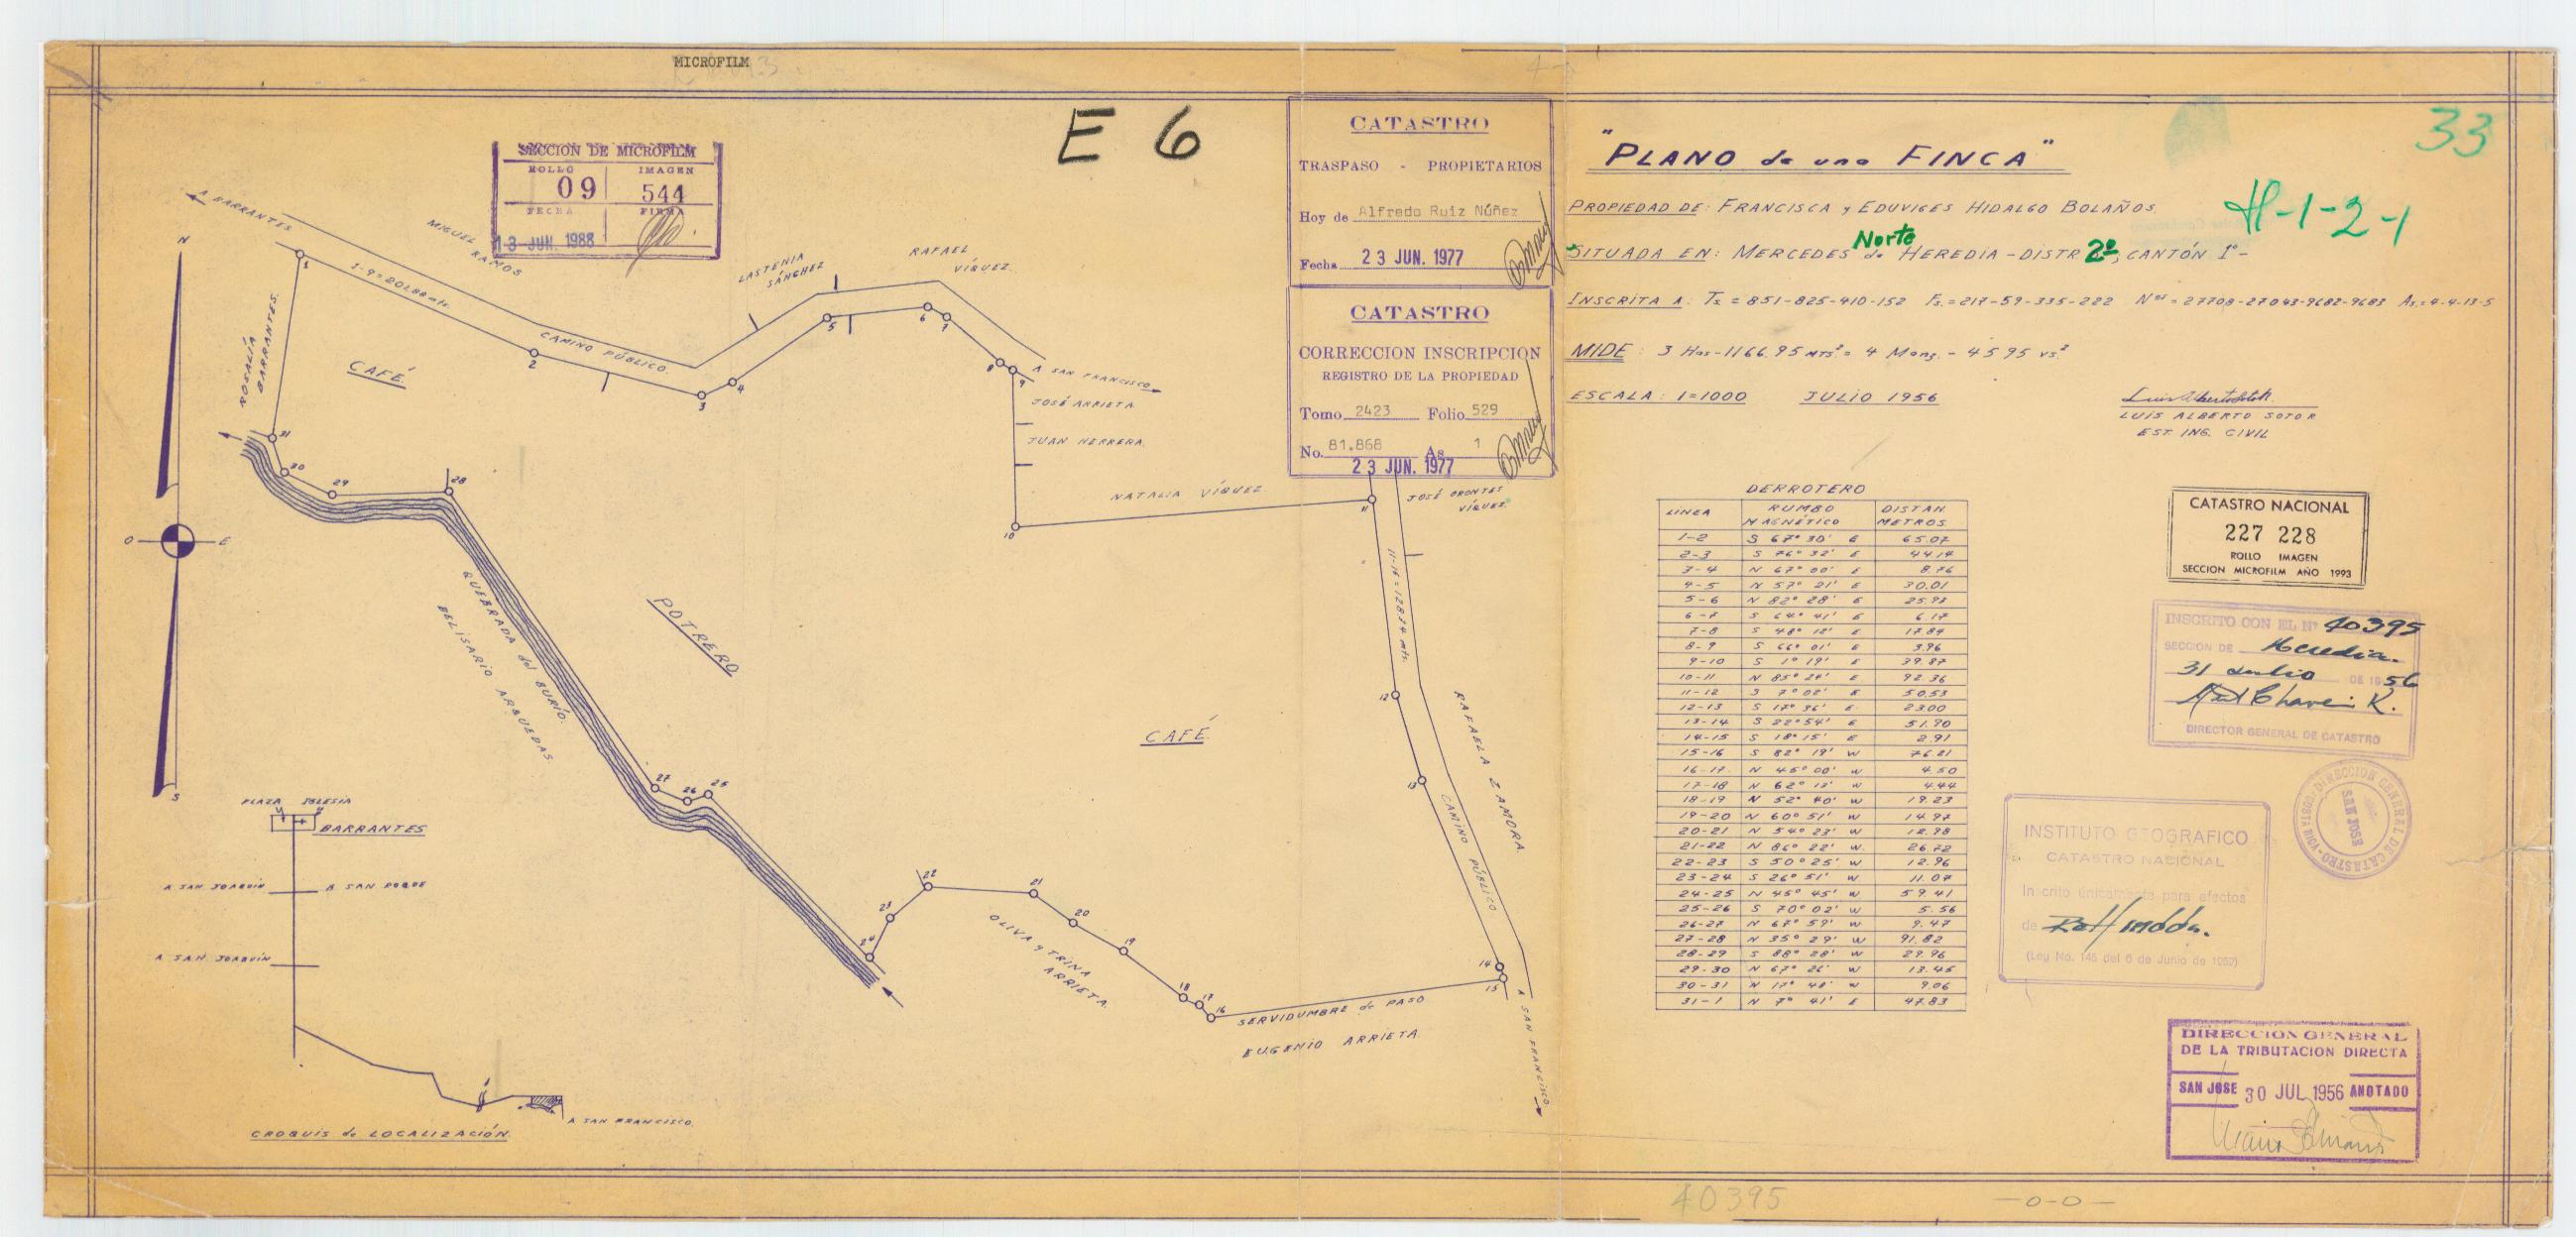 MICROFILM
E 6
33
SECCION DE MICROFILM
ROLLO IMAGEN
09 544
FECHA FIRMA
13 JUN. 1988
CATASTRO
TRASPASO - PROPIETARIOS
Hoy de Alfredo Ruiz Núñez
Fecha 23 JUN. 1977
CATASTRO
CORRECCION INSCRIPCION
REGISTRO DE LA PROPIEDAD
Tomo 2423 Folio 529
No. 81.868 As. 1
23 JUN. 1977
"PLANO de una FINCA"
H-1-2-1
PROPIEDAD DE: FRANCISCA y EDUVIGES HIDALGO BOLAÑOS.
SITUADA EN: MERCEDES Norte de HEREDIA-DISTR 2º, CANTÓN 1º-
INSCRITA A: Ts = 851-825-410-152 Fs. = 217-59-335-222 Nos = 27708-27043-9682-9683 As. = 4-4-13-5
MIDE: 3 Has-1166.95 MTS² = 4 Manz. - 4595 vs²
ESCALA: 1=1000 JULIO 1956
LUIS ALBERTO SOTO R
EST. ING. CIVIL
A BARRANTES
MIGUEL RAMOS
1-9=201.88 mts.
CAMINO PÚBLICO.
LASTENIA SÁNCHEZ
RAFAEL VÍQUEZ
A SAN FRANCISCO
JOSÉ ARRIETA
JUAN HERRERA.
NATALIA VÍQUEZ
JOSÉ ORONTES VÍQUEZ
ROSALÍA BARRANTES.
CAFÉ
POTRERO
CAFÉ
QUEBRADA del BURÍO.
BELISARIO ARGUEDAS
11-15=128.34 mts.
CAMINO PÚBLICO
RAFAELA ZAMORA.
OLIVA y TRINA ARRIETA.
SERVIDUMBRE de PASO
EUGENIO ARRIETA.
A SAN FRANCISCO
N
O E
S
1
2
3
4
5
6
7
8
9
10
11
12
13
14
15
16
17
18
19
20
21
22
23
24
25
26
27
28
29
30
31
PLAZA IGLESIA
BARRANTES
A SAN JOAQUÍN A SAN ROQUE
A SAN JOAQUÍN
A SAN FRANCISCO.
CROQUIS de LOCALIZACIÓN.
DERROTERO
LÍNEA RUMBO MAGNÉTICO DISTAN. METROS.
1-2 S 67° 30' E 65.07
2-3 S 76° 32' E 44.14
3-4 N 67° 00' E 8.76
4-5 N 57° 21' E 30.01
5-6 N 82° 28' E 25.93
6-7 S 64° 41' E 6.17
7-8 S 48° 12' E 17.84
8-9 S 66° 01' E 3.96
9-10 S 1° 19' E 39.87
10-11 N 85° 24' E 92.36
11-12 S 7° 02' E 50.53
12-13 S 17° 36' E 23.00
13-14 S 22° 54' E 51.90
14-15 S 18° 15' E 2.91
15-16 S 82° 19' W 76.21
16-17 N 45° 00' W 4.50
17-18 N 62° 13' W 4.44
18-19 N 52° 40' W 19.23
19-20 N 60° 51' W 14.97
20-21 N 54° 23' W 12.98
21-22 N 86° 22' W 26.72
22-23 S 50° 25' W 12.96
23-24 S 26° 51' W 11.07
24-25 N 45° 45' W 59.41
25-26 S 70° 02' W 5.56
26-27 N 67° 59' W 9.47
27-28 N 35° 29' W 91.82
28-29 S 88° 28' W 29.96
29-30 N 67° 26' W 13.45
30-31 N 17° 48' W 9.06
31-1 N 7° 41' E 47.83
CATASTRO NACIONAL
227 228
ROLLO IMAGEN
SECCION MICROFILM AÑO 1993
INSCRITO CON EL Nº 40395
SECCION DE Heredia.
31 Julio DE 1956
DIRECTOR GENERAL DE CATASTRO
DIRECCION GENERAL DE CATASTRO
SAN JOSE
INSTITUTO GEOGRAFICO
CATASTRO NACIONAL
Inscrito únicamente para efectos
de
(Ley No. 146 del 6 de Junio de 1952)
DIRECCION GENERAL
DE LA TRIBUTACION DIRECTA
SAN JOSE 30 JUL 1956 ANOTADO
40395